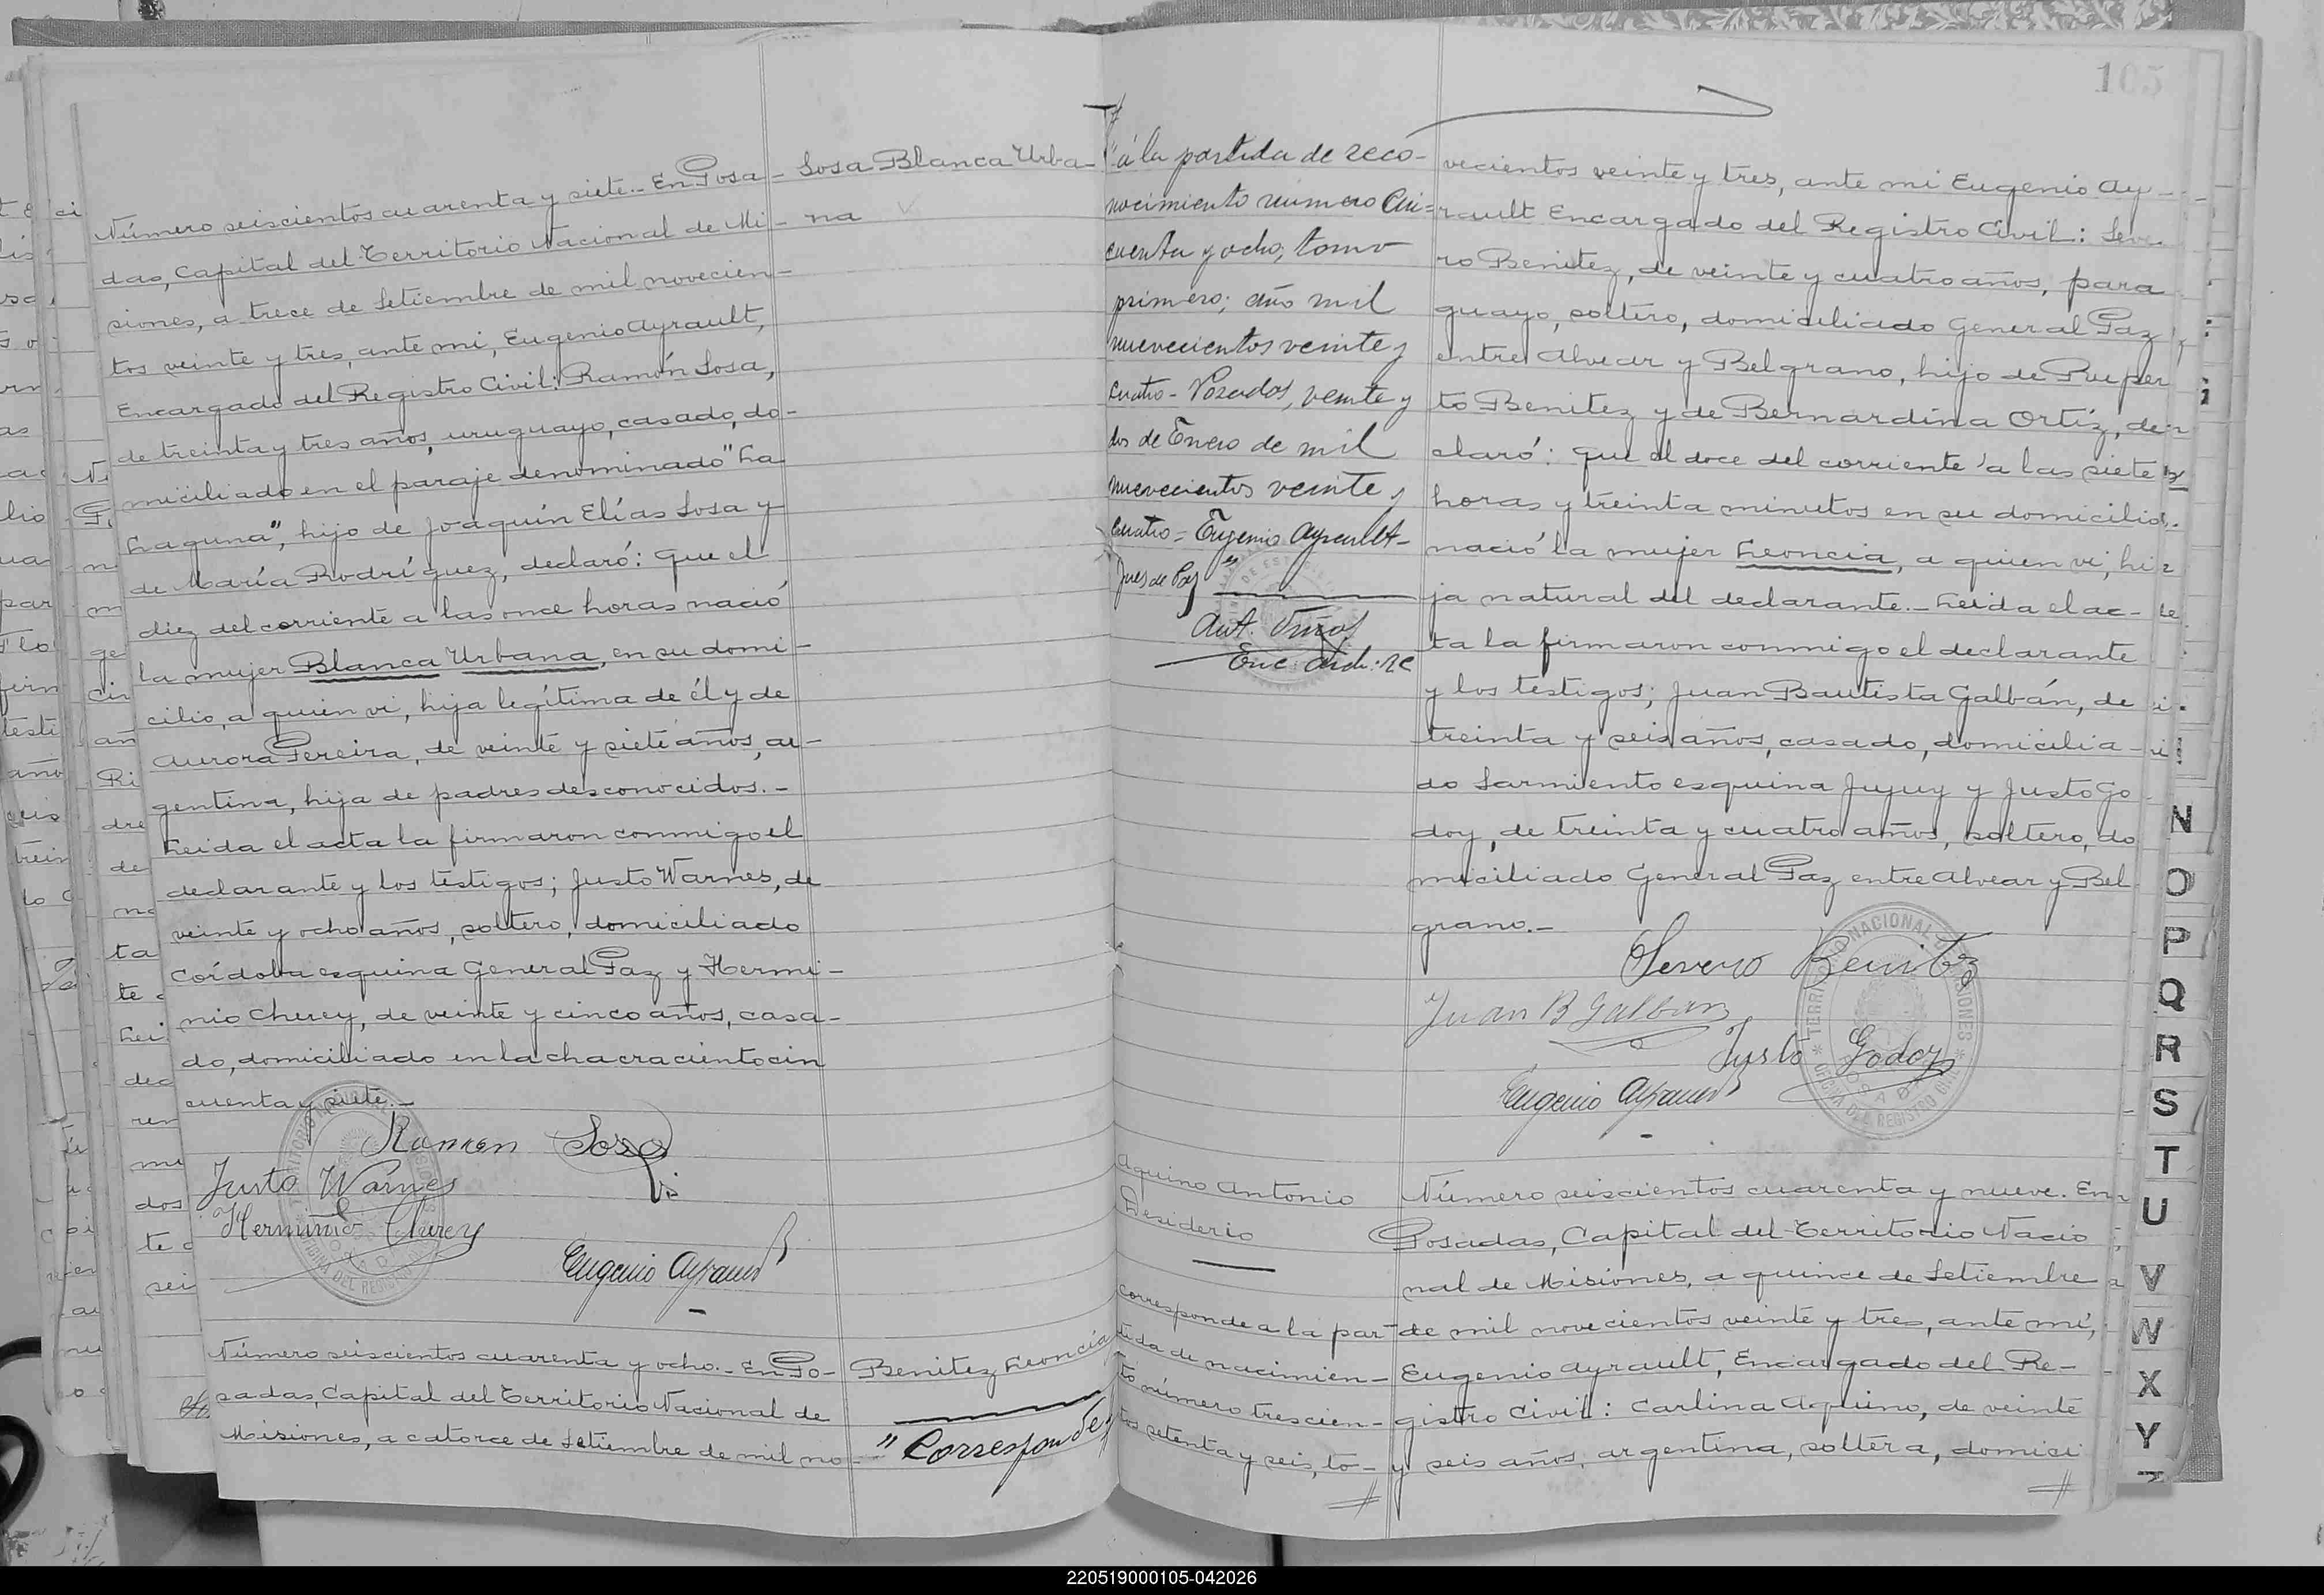 Número seiscientos cuarenta y siete.- En Posa-
das, Capital del Territorio Nacional de Mi-
siones, a trece de Setiembre de mil novecien-
tos veinte y tres, ante mi, Eugenio Ayrault,
Encargado del Registro Civil: Ramón Sosa,
de treinta y tres años, uruguayo, casado, do-
miciliado en el paraje denominado "La
Laguna", hijo de Joaquín Elías Sosa y
de María Rodríguez, declaró: Que el
diez del corriente a las once horas nació
la mujer Blanca Urbana, en su domi-
cilio, a quien vi, hija legítima de él y de
Aurora Pereira, de veinte y siete años, ar-
gentina, hija de padres desconocidos.-
Leida el acta la firmaron conmigo el
declarante y los testigos; Justo Warnes, de
veinte y ocho años, soltero, domiciliado
Córdoba esquina General Paz y Hermi-
nio Cherey, de veinte y cinco años, casa-
do, domiciliado en la chacra ciento cin
cuenta y siete.-
Ramon Sosa
Justo Warnes
Herminio Cherey
Eugenio Ayrault
Sosa Blanca Urba-
na
Número seiscientos cuarenta y ocho.- En Po-
sadas, Capital del Territorio Nacional de
Misiones, a catorce de Setiembre de mil no-
Benitez Leoncia
"Corresponde
105
"á la partida de reco-
nocimiento número Cin-
cuenta y ocho, tomo
primero; año mil
nuevecientos veinte y
cuatro- Posadas, veinte y
dos de Enero de mil
nuevecientos veinte y
cuatro= Eugenio Ayrault-
Juez de Paz"
Enc. Arch.
vecientos veinte y tres, ante mi Eugenio Ay-
rault Encargado del Registro Civil: Seve
ro Benitez, de veinte y cuatro años, para
guayo, soltero, domiciliado General Paz
entre Alvear y Belgrano, hijo de Ruper
to Benitez y de Bernardina Ortíz, de-
claró: Que el doce del corriente a las siete
horas y treinta minutos en su domicilio
nació la mujer Leoncia, a quien vi, hi
ja natural del declarante.- Leida el ac-
ta la firmaron conmigo el declarante
y los testigos; Juan Bautista Galbán, de
treinta y seis años, casado, domicilia-
do Sarmiento esquina Jujuy y Justo Go
doy, de treinta y cuatro años, soltero, do
miciliado General Paz entre Alvear y Bel
grano.-
Severo Benitez
Juan B Galban
Justo Godoy
Eugenio Ayrault
TERRITORIO NACIONAL DE MISIONES
OFICINA DEL REGISTRO CIVIL
POSADAS
Aquino Antonio
Desiderio
corresponde a la par-
tida de nacimien-
to número trescien-
tos setenta y seis, to-
Número seiscientos cuarenta y nueve. En
Posadas, Capital del Territorio Nacio
nal de Misiones, a quince de Setiembre
de mil novecientos veinte y tres, ante mi,
Eugenio Ayrault, Encargado del Re-
gistro Civil: Carlina Aquino, de veinte
y seis años, argentina, soltera, domici
N
O
P
Q
R
S
T
U
V
W
X
Y
Z
220519000105-042026